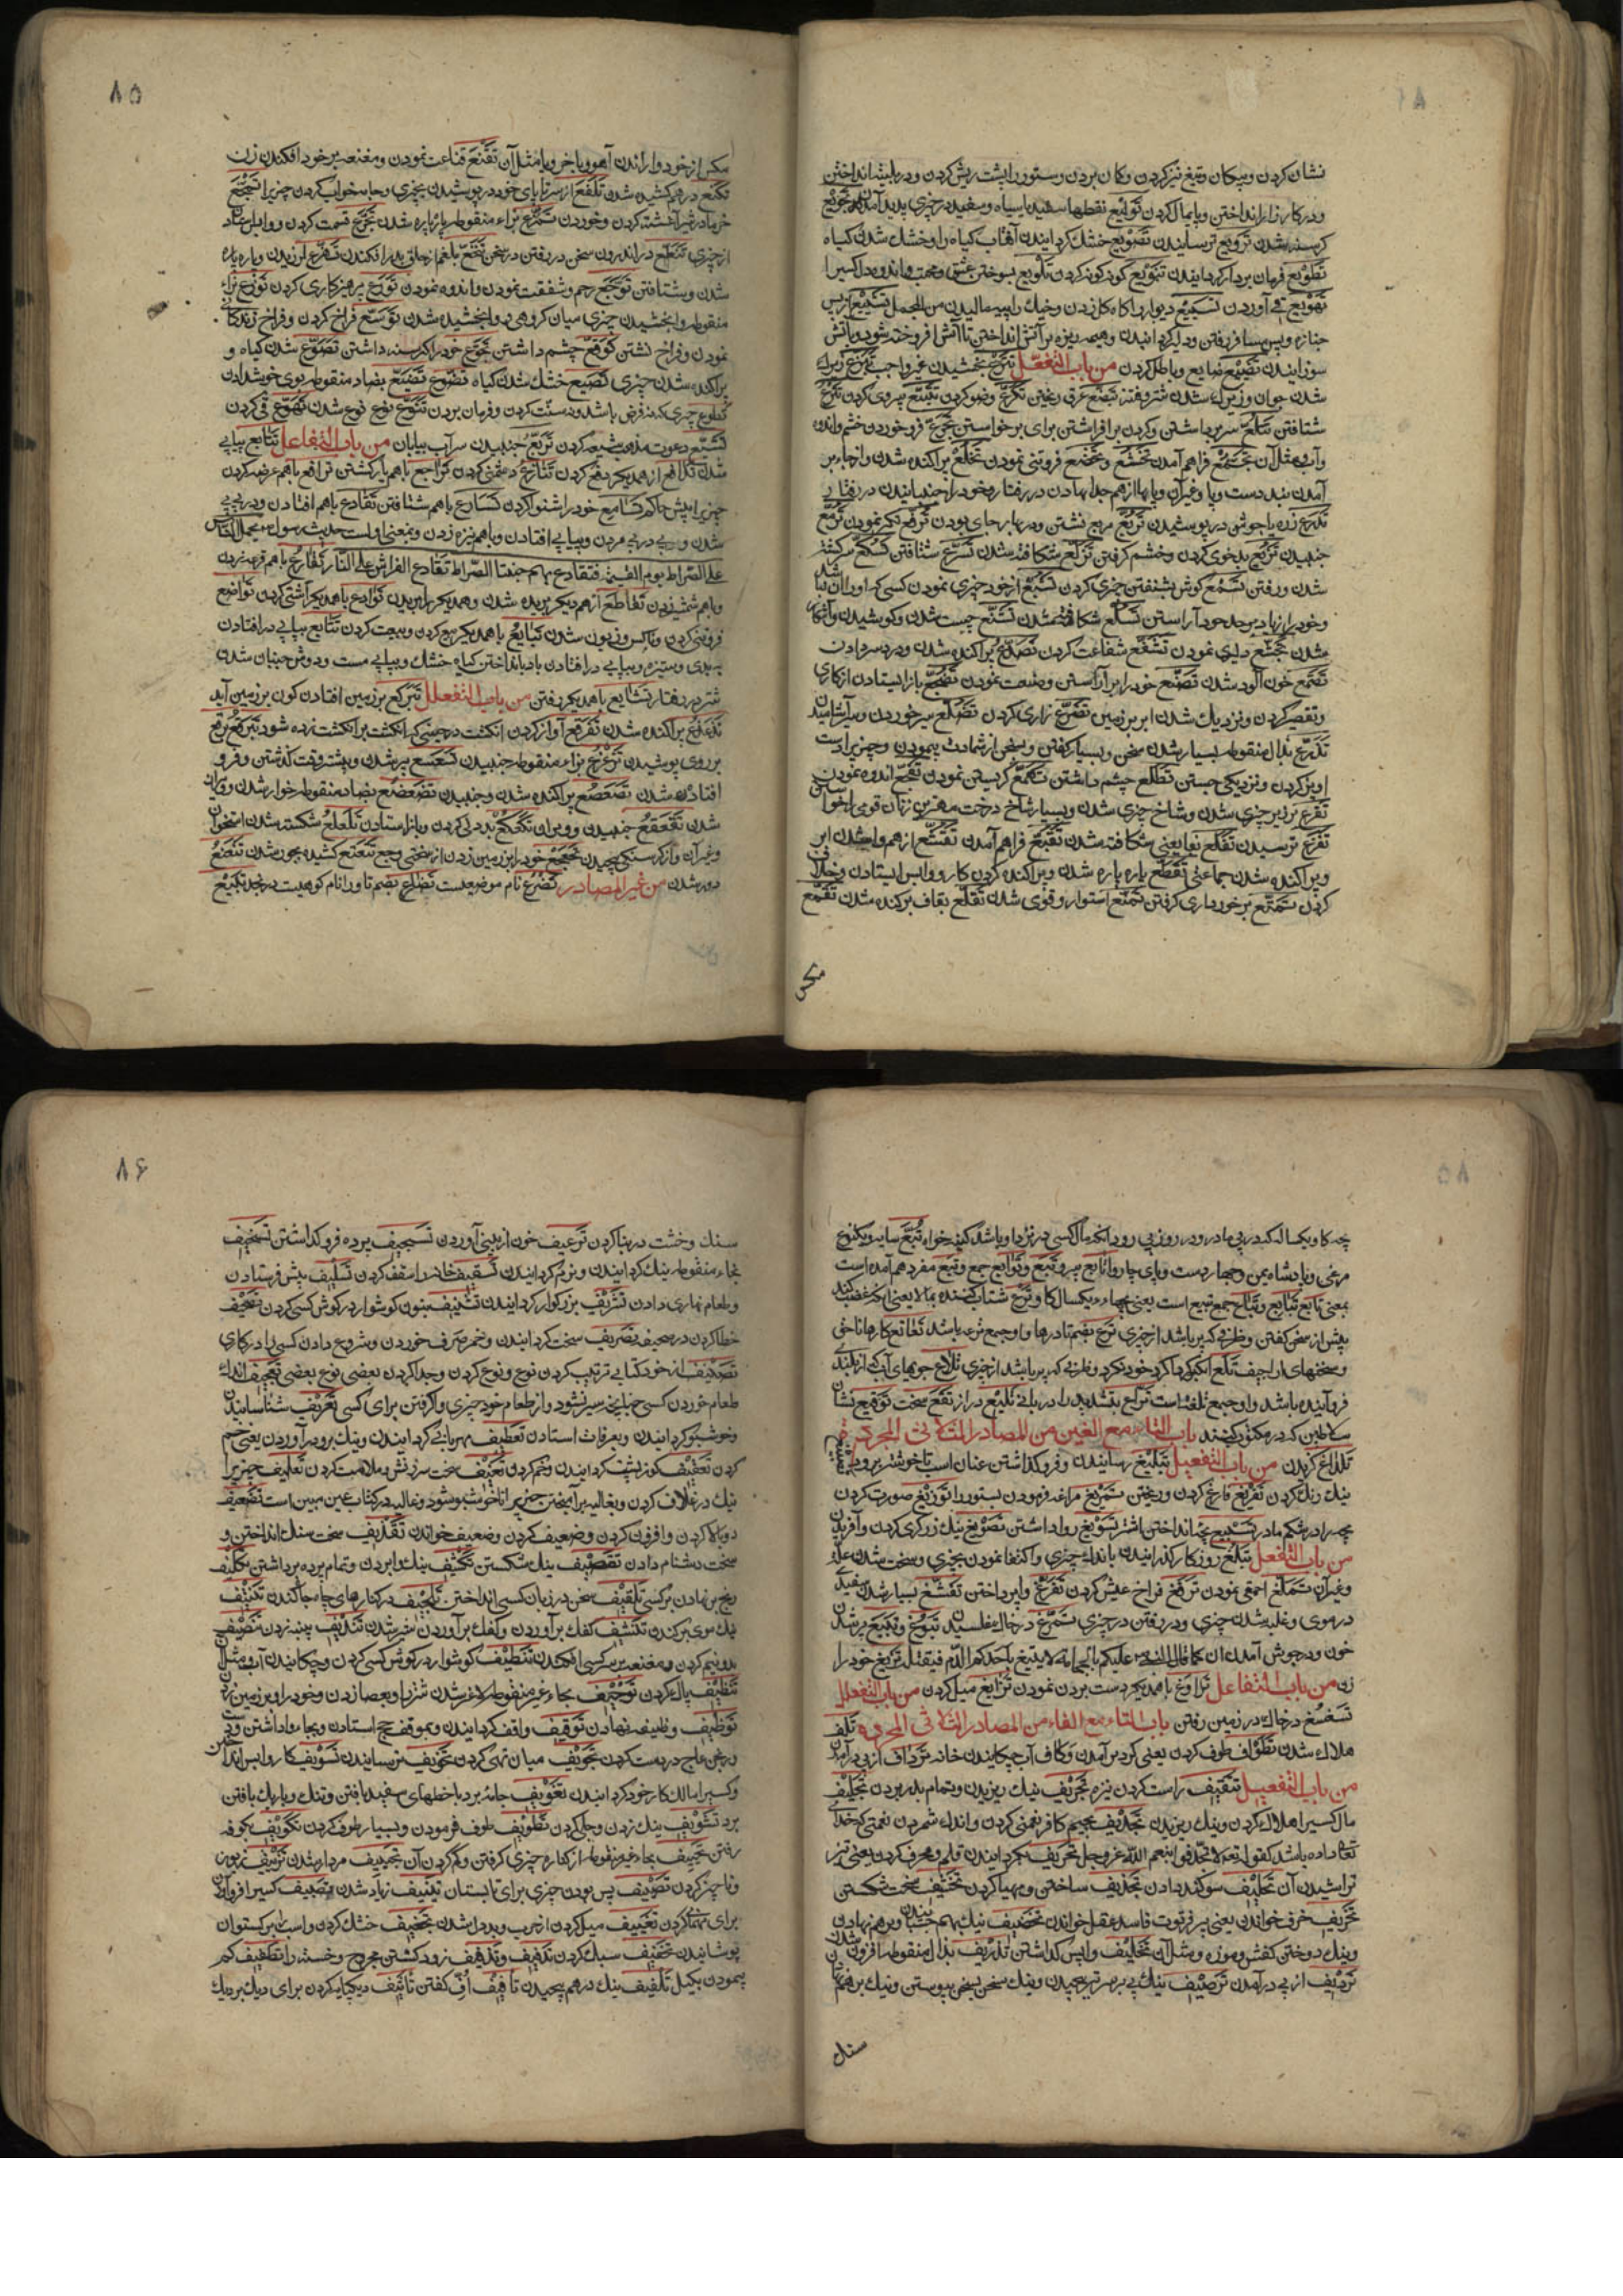 نشان کردن و پیکان و تیغ تیز کردن و کان بردن و ستور را پشت ریش کردن و در بلیشه انداختن
و در کارزار انداختن و پایمال کردن تولیع نقطها سفید یا سیاه و سفید در چیزی پدید آمدن تجویع
کرسنه شدن ترویع ترسانیدن تصویع خشک کردانیدن آفتاب کیاه را و خشک شدن کیاه
تطویع فرمان بردار کردانیدن تنویع کوناکون کردن تلویع بسوختن عشق و محبت و اندوه دل کسیرا
تهویع قی آوردن تسییع دیوار را کاه کل زدن و خیک را پیه مالیدن من المجمل تشییع از پس
جنازه و پس مسافر رفتن و دلیر کردانیدن و هیمه ریزه بر آتش انداختن تا آتش افروخته شود و باتش
سوزانیدن تضییع ضایع و باطل کردن من باب التفعّل تبرّع بخشیدن غیر واجب
شتافتن تتلّع سر برداشتن و کردن برافراشتن برای برخواستن تجرّع فرو خوردن خشم و اندوه
و آب و مثل آن تجمّع فراهم آمدن تخشّع و تخضّع فروتنی نمودن تخلّع پراکنده شدن و از جا بر
آمدن بند دست و پا و غیر آن و پایها از هم جدا نهادن در رفتار و خود را جنبانیدن در رفتار
تدرّع زره یا جوشن در پوشیدن تربّع مربع نشتن و در بهار جای بودن ترفّع تکبر نمودن ترمّع
جنبیدن تزبّع بدخوی کردن و خشم کرفتن تزلّع شکافته شدن تسرّع شتافتن تسکّع سرکشته
شدن و رفتن تسمّع کوش بشنفتن چیزی کردن تشبّع از خود چیزی نمودن کسی که او را آن نباشد
و خود را زیاده بر حد خود آراستن تسلّع شکافته شدن تشنّع چست شدن و کوشیدن و آشکار
شدن تشجّع دلیری نمودن تشفّع شفاعت کردن تصدّع پراکنده شدن و درد سر دادن
تقمّع خون آلود شدن تصنّع خود را برآراستن و صنعت نمودن تضجّع باز ایستادن از کاری
و تقصیر کردن و نزدیک شدن ابر بر زمین تضرّع زاری کردن تضلّع سیر خوردن و سیر آشامیدن
تذرّع بذال منقوطه بسیار شدن سخن و بسیار کفتن و سخن از شمادت پیمودن و چیزیرا دست
آویز کردن و نزدیکی جستن تطلّع چشم داشتن تکمّع کریستن نمودن تفجّع اندوه نمودن
تفرّع بر زبر چیزی شدن و شاخ چیزی شدن و بسیار شاخ درخت مهترین زنان قومی را خواستن
تفزّع ترسیدن تفلّع بفا یعنی شکافته شدن تقبّع فراهم آمدن تقشّع از هم واشدن ابر
و پراکنده شدن جماعتی تقطّع پاره پاره شدن و پراکنده کردن کار و واپس ایستادن و خلاف
کردن تمتّع برخورداری کرفتن تمنّع استوار و قوی شدن تقلّع بقاف برکنده شدن تقمّع
مکس
۸۵
مکس از خود واراندن آهو یا خر و یا مثل آن تقنّع قناعت نمودن و مقنعه بر خود افکندن زن
تکنّع در هم کشیده شدن تلفّع از سر تا پای خود در پوشیدن بچیزی و جامه خواب کردن چیزیرا تمجّع
خرما در شیر آغشته کردن و خوردن تمزّع بزاء منقوطه پاره پاره شدن تجزّع قسمت کردن و وا بریدن
از چیزی تنطّع در اندرون سخن در رفتن در سخن تنخّع بلغم از حلق بدر افکندن تهزّع لرزیدن و پاره پاره
شدن و شتافتن توجّع رحم و شفقت نمودن و اندوه نمودن تورّع پرهیزکاری کردن توزّع بزاء
منقوطه وابخشیدن چیزی میان کروهی و وابخشیده شدن توسّع فراخ کردن و فراخ زندکانی
نمودن و فراخ نشتن توقّع چشم داشتن تجوّع خود را کرسنه داشتن تصوّع شدن کیاه و
پراکنده شدن چیزی تصیّع خشک شدن کیاه تضوّع تضیّع بضاد منقوطه بوی خوش دادن
تطوّع چیزی که نه فرض باشد و نه سنّت کردن و فرمان بردن تنوّع نوع نوع شدن تهوّع قی کردن
تشیّع دعوت مذهب شیعه کردن تریّع جنبیدن سرآب بیابان من باب التفاعل تتابع پیاپی
شدن تدافع از همدیکر دفع کردن تنازع دشمنی کردن تراجع با هم بازکشتن ترافع با هم عرضه کردن
چیزیرا پیش حاکم تسامع خود را شنوا کردن تسارع با هم شتافتن تقادع با هم افتادن و در پی پی
شدن و پی در پی مردن و پیاپی افتادن و با هم نیزه زدن و بمعنی اولست حدیث رسول ؐ یحمل الناس
علی الصّراط یوم القیمة فتقادع بهم جنبتا الصّراط تقادع الفراش علی النّار تقارع با هم قرعه زدن
و با هم شمشیر زدن تقاطع از هم دیکر بریده شدن و همدیکر را بریدن توادع با همدیکر آشتی کردن تواضع
فروتنی کردن و ناکس و زبون شدن تبایع با همدیکر بیع کردن و بیعت کردن تتایع پیاپی در افتادن
به بدی و ستیزه و پیاپی در افتادن باد باانداختن کیاه خشک و پیاپی مست و دوش جنبان شدن
شتر در رفتار تشایع با همدیکر رفتن من باب التفعلل تبرکع بر زمین افتادن کون بر زمین آید
تذعذع پراکنده شدن تفرقع آواز کردن انکشت در حینی که انکشت بر انکشت زده شود تبرقع برقع
بر روی پوشیدن تزعزع بزاء منقوطه جنبیدن تسعسع پیر شدن و بیشتر وقت کذشتن و فرو
افتاده شدن تصعصع پراکنده شدن و جنبیدن تضعضع بضاد منقوطه خوار شدن و ویران
شدن تقعقع جنبیدن و ویران تکعکع بددلی کردن و باز استادن تلعلع شکسته شدن استخوان
و غیر آن و از کرسنکی پیچیدن تجعجع خود را بر زمین زدن از سختی وجع تتعتع کشیده بچوب شدن تنعنع
دور شدن من غیر المصادر تضرع نام موضعیست تضلع بضم تا و را نام کوهیست در نجد تکبیع
چه کاو یکساله که در پی مادر رود و در روز پی رود آنکه مال کسی در نزد او باشد کینه خواه تبّع سایه و یکنوع
مرغی و پادشاه یمن و چهار دست و پای چاروا تابع پیرو تبع و توابع جمع و تبع مفرد هم آمده است
بمعنی تابع تبایع و تباع جمع تبیع است یعنی بچهاء یکساله کاو تزع شتاب کننده ببدلا یعنی آنکه غضب کند
پیش از سخن کفتن و ظرفی که پر باشد از چیزی ترع بضم تا درها و او جمع ترعه باشد تعاتع کارها ناخی
و سخنهای اراجیف تلع آنکه کرداکرد خود نکرد و ظرفی که پر باشد از چیزی تلاع جویهای آب که از بلندی
فرو آینده باشد و او جمع تلعه است تراع بتشدید را دربان تلیع دراز تقع سخت توقیع نشان
سلاطین که در مکتوب کنند باب التاء مع الغین من المصادر الثلاثی المجرد
تلداغ کزیدن من باب التفعیل تبلیغ رسانیدن و فرو کذاشتن عنان اسب تا خوشتر برود
نیک رنک کردن تفریغ فارغ کردن و ریختن تمریغ مراغه فرمودن ستور را توزیغ صورت کردن
بچه را در شکم مادر تسبیغ بچه انداختن اشتر تسویغ روا داشتن تصویغ نیک زرکری کردن و آفریدن
من باب التفعل تبلّغ روزکار کذرانیدن باندک چیزی و اکتفا نمودن بچیزی و سخت شدن علّت
و غیر آن تملّغ احمقی نمودن ترفّغ فراخ عیش کردن تفرّغ واپرداختن تفشّغ بسیار شدن سفیدی
در موی و غلبه شدن چیزی و در رفتن در چیزی تمرّغ در خاک غلطیدن تبوّغ و تبیّغ پر شدن
خون و در جوش آمدن آن کما قال النبی علیکم بالحجامة لا یتبیغ باحدکم الدّم فیقتله تزیّغ خود را
زن من باب التفاعل تراوغ با همدیکر دست بردن نمودن تزایغ میل کردن من باب التفعلل
تسغسغ در خاک در زمین رفتن باب التاء مع الفاء من المصادر الثلاثی المجرده تلف
هلاک شدن تطواف طوف کردن یعنی کرد برآمدن وکاف آب چکانیدن خانه ترداف از پی درآمدن
من باب التفعیل تثقیف راست کردن نیزه تجریف نیک ریزیدن و تمام بدر بردن تجلیف
مال کسیرا هلاک کردن و نیک ریزیدن تجدیف بجیم کافر نعمتی کردن و اندک شمردن نعمتی که خدای
تعا داده باشد کقوله تعا لا تجدّفوا بنعم اللّه عزوجل تحریف بکردانیدن قلم و محرف کردن یعنی تیز
تراشیدن آن تحلیف سوکند دادن تحذیف ساختن و مهیا کردن تخنیف سخت شکستن
تخریف خرف خواندن یعنی پیر فرتوت فاسد عقل خواندن تخصیف نیک بهم چسبانیدن و بر هم نهادن
و نیک دوختن کفش و موزه و مثل آن تخلیف واپس کذاشتن تذریف بذال منقوطه افزون شدن
تردیف از پی درآمدن ترصیف نیک پی بر سر تیر پیچیدن و نیک سخن بسخن پیوستن و نیک برهم نهادن
سنک
۸۶
سنک و خشت در بنا کردن ترعیف خون از بینی آوردن تسجیف پرده فرو کذاشتن تسخیف
بخاء منقوطه نیک کردانیدن و نرم کردانیدن تسقیف خانه را سقف کردن تسلیف پیش فرستادن
و طعام نهاری دادن تشریف بزرکوار کردانیدن تشنیف بنون کوشوار در کوش کسی کردن تصحیف
خطا کردن در صحیفه تصریف سخت کردانیدن و خمر صرف خوردن و شروع دادن کسی را در کاری
تصنیف از خود کتابی ترتیب کردن نوع و نوع کردن و جدا کردن بعضی نوع بعضی تعجیف اندک
طعام خوردن کسی چنانچه سیر نشود و از طعام خود چیزی واکرفتن برای کسی تعریف شناسانیدن
و خوشبو کردانیدن و بعرفات استادن تعطیف مهربانی کردانیدن و نیک برو درآوردن یعنی خم
کردن تعقیف کوز پشت کردانیدن و خم کردن تعنیف سخت سرزنش و ملامت کردن تغلیف چیزیرا
نیک در غلاف کردن و بغالیه برآمیختن چیزیرا تا خوشبو شود و غالیه در کتاب عین مبین است تضعیف
دوبالا کردن و افزون کردن و ضعیف کردن و ضعیف خواندن تقذیف سخت سنک انداختن و
سخت دشنام دادن تقصیف نیک شکستن تکثیف نیک وا بردن و تمام پرده برداشتن تکلیف
رنج بر نهادن بر کسی تلقیف سخن در زبان کسی انداختن تلجیف در کنارهای چاه جا کندن تکنیف
نیک موی برکندن تکشیف کفک برآوردن و کفک برآوردن شیر شدن تندیف پنبه زدن تنصیف
بدو نیم کردن و مقنعه بر سر کسی افکندن تنطیف کوشوار در کوش کسی کردن و چکانیدن آب و مثل آن
تنظیف پاک کردن توحیف بحاء غیر منقوطه لاغر شدن شتر و بعصا زدن و خود را بر زمین زدن
توظیف وظیفه نهادن توقیف واقف کردانیدن و بموقف حج استادن و بجای واداشتن و
رنجن عاج در دست کردن تجویف میان تهی کردن تخویف ترسانیدن تسویف کار واپس انداختن
و کسیرا مالک کار خود کردانیدن تفویف جامه برد با خطهای سفید بافتن و تنک و باریک بافتن
برد تشویف نیک زدن و جلی کردن تطویف طوف فرمودن و بسیار طوف کردن تکویف بکوفه
رفتن تحییف بحاء غیر منقوطه از کناره چیزی کرفتن و کم کردن آن تجییف مردار شدن تزییف زبون
و ناچیز کردن تصییف بس بودن چیزی برای تابستان تنییف زیاد شدن تضییف کسیرا فرود آوردن
برای مهمانی کردن تغییف میل کردن از حرب و بددل شدن تجفیف خشک کردن و اسب را برکستوان
پوشانیدن تخفیف سبک کردن تدفیف و تذفیف زود کشتن مجروح و خسته را تطفیف کم
پیمودن بکیل تلفیف نیک در هم پیچیدن تافیف افّ کفتن تاثیف دیکپایه کردن برای دیک بر دیک